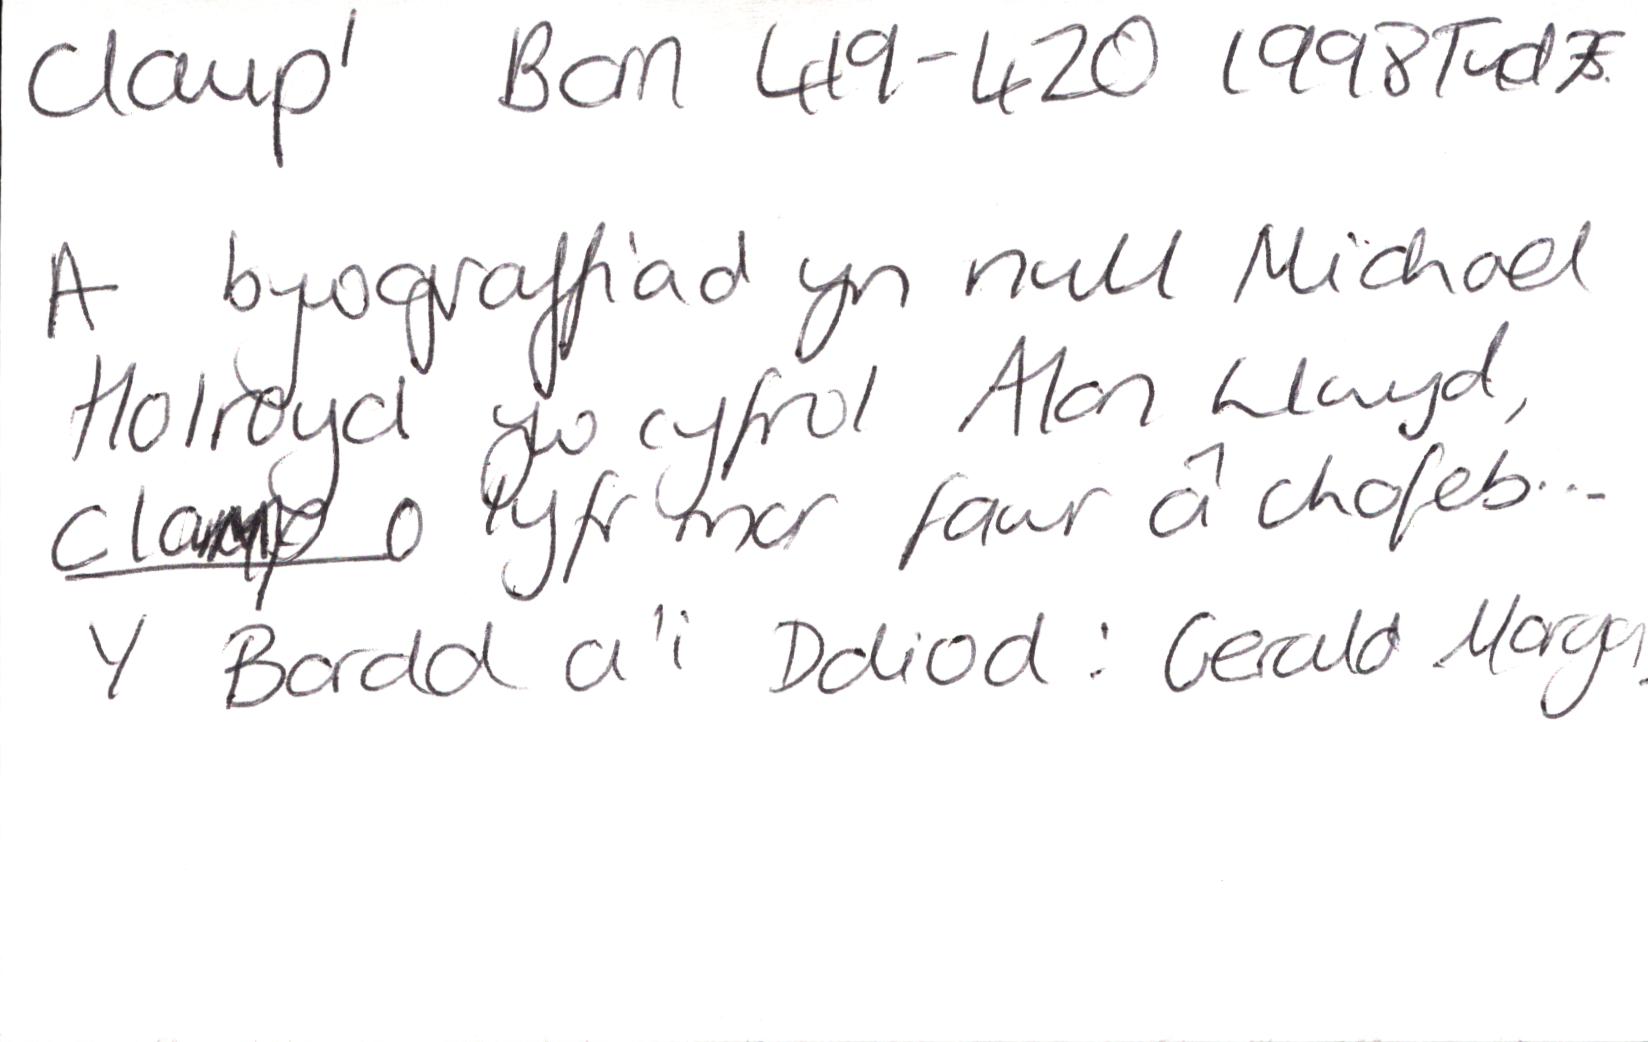 Clamp' Barn 419-420 1998 Tud 75.
A byograffiad yn null Michael
Holroyd yw cyfrol Alan Llwyd,
clamp o lyfr mor fawr â chofeb...
Y Bardd a'i Ddiod: Gerald Morgan